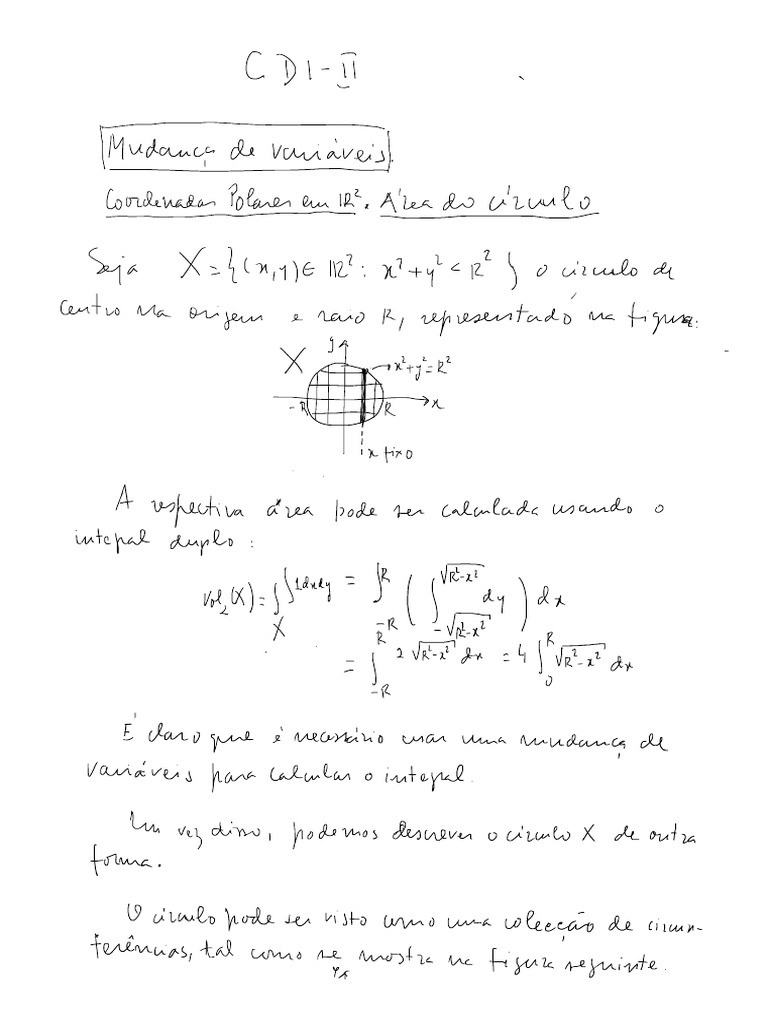 CDI-II
Mudança de variáveis.
Coordenadas Polares em ℝ². Área do círculo
Seja X = {(x,y) ∈ ℝ² : x² + y² < R²} o círculo de
centro na origem e raio R, representado na figura:
y
X
x²+y²=R²
-R R x
x fixo
A respectiva área pode ser calculada usando o
integral duplo:
vol₂(X) = ∫∫_X 1dxdy = ∫_{-R}^{R} ( ∫_{-√(R²-x²)}^{√(R²-x²)} dy ) dx
= ∫_{-R}^{R} 2√(R²-x²) dx = 4 ∫_0^R √(R²-x²) dx
É claro que é necessário usar uma mudança de
variáveis para calcular o integral.
Em vez disso, podemos descrever o círculo X de outra
forma.
O círculo pode ser visto como uma colecção de circun-
ferências, tal como se mostra na figura seguinte.